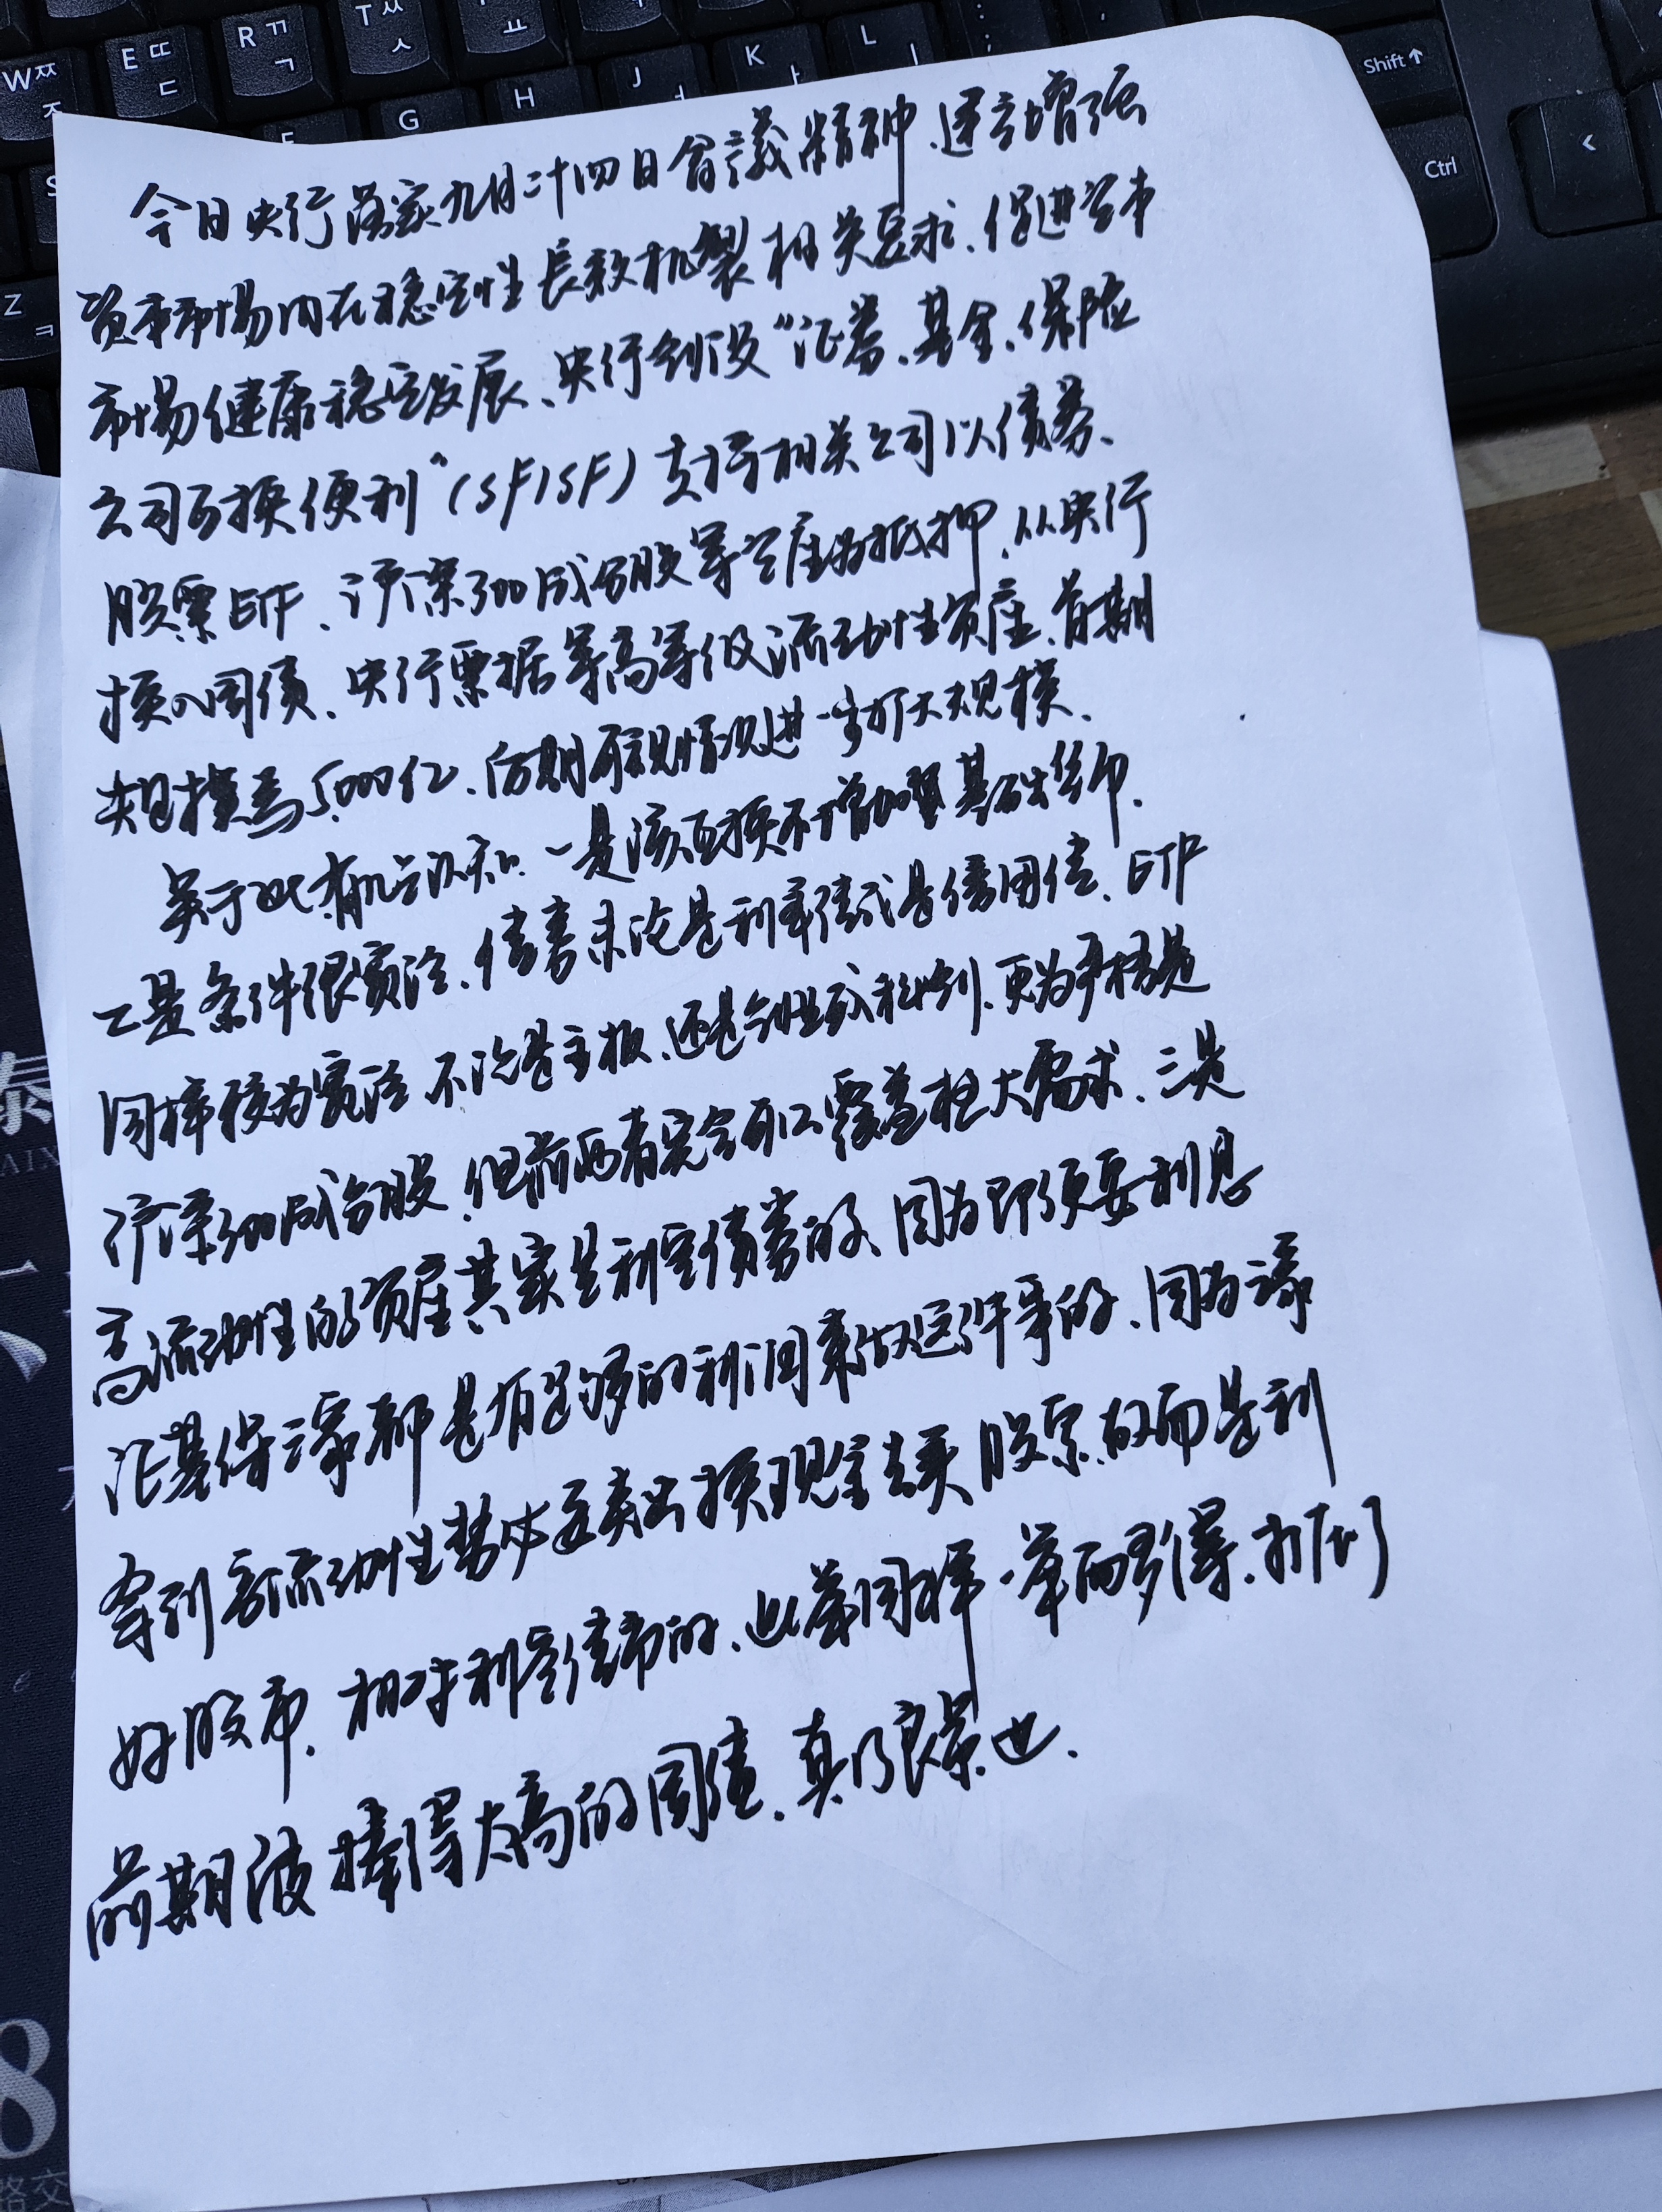 W ㅉ ㅈ
E ㄸ ㄷ
R ㄲ ㄱ
T ㅆ ㅅ
ㅛ
G
H
J ㅓ
K ㅏ
L ㅣ
Shift ↑
Ctrl
<
Z ㅋ
今日央行落实九月二十四日会議精神、建立增强
资本市场内在稳定性長效机製相关要求、促进资本
市场健康稳定发展、央行创设“证券、基金、保险
公司互换便利”(SFISF)支持相关公司以债券、
股票ETF、沪深300成分股等资产为抵押、从央行
换入国债、央行票据等高等级流动性资产、首期
规模为5000亿、后期可视情况进一步扩大规模、
关于此有几点认知、一是该互换不增加基础货币、
二是条件很宽泛、债券未论是利率债或是信用债、ETF
同样较为宽泛 不论是主板、还是创业或科创、更为严格是
沪深300成分股、但前两者完全可以覆盖极大需求、三是
高流动性的资产其实是利空债券的、因为即须要利息
证基保三家都是有足够的利润来做这件事的、因为三家
拿到高流动性势必要卖出换现金去买股票、故而是利
好股市、相对利空债市的、此举同样一举而多得、打压了
前期被捧得太高的国债、真乃良策也、
泰
8
路交